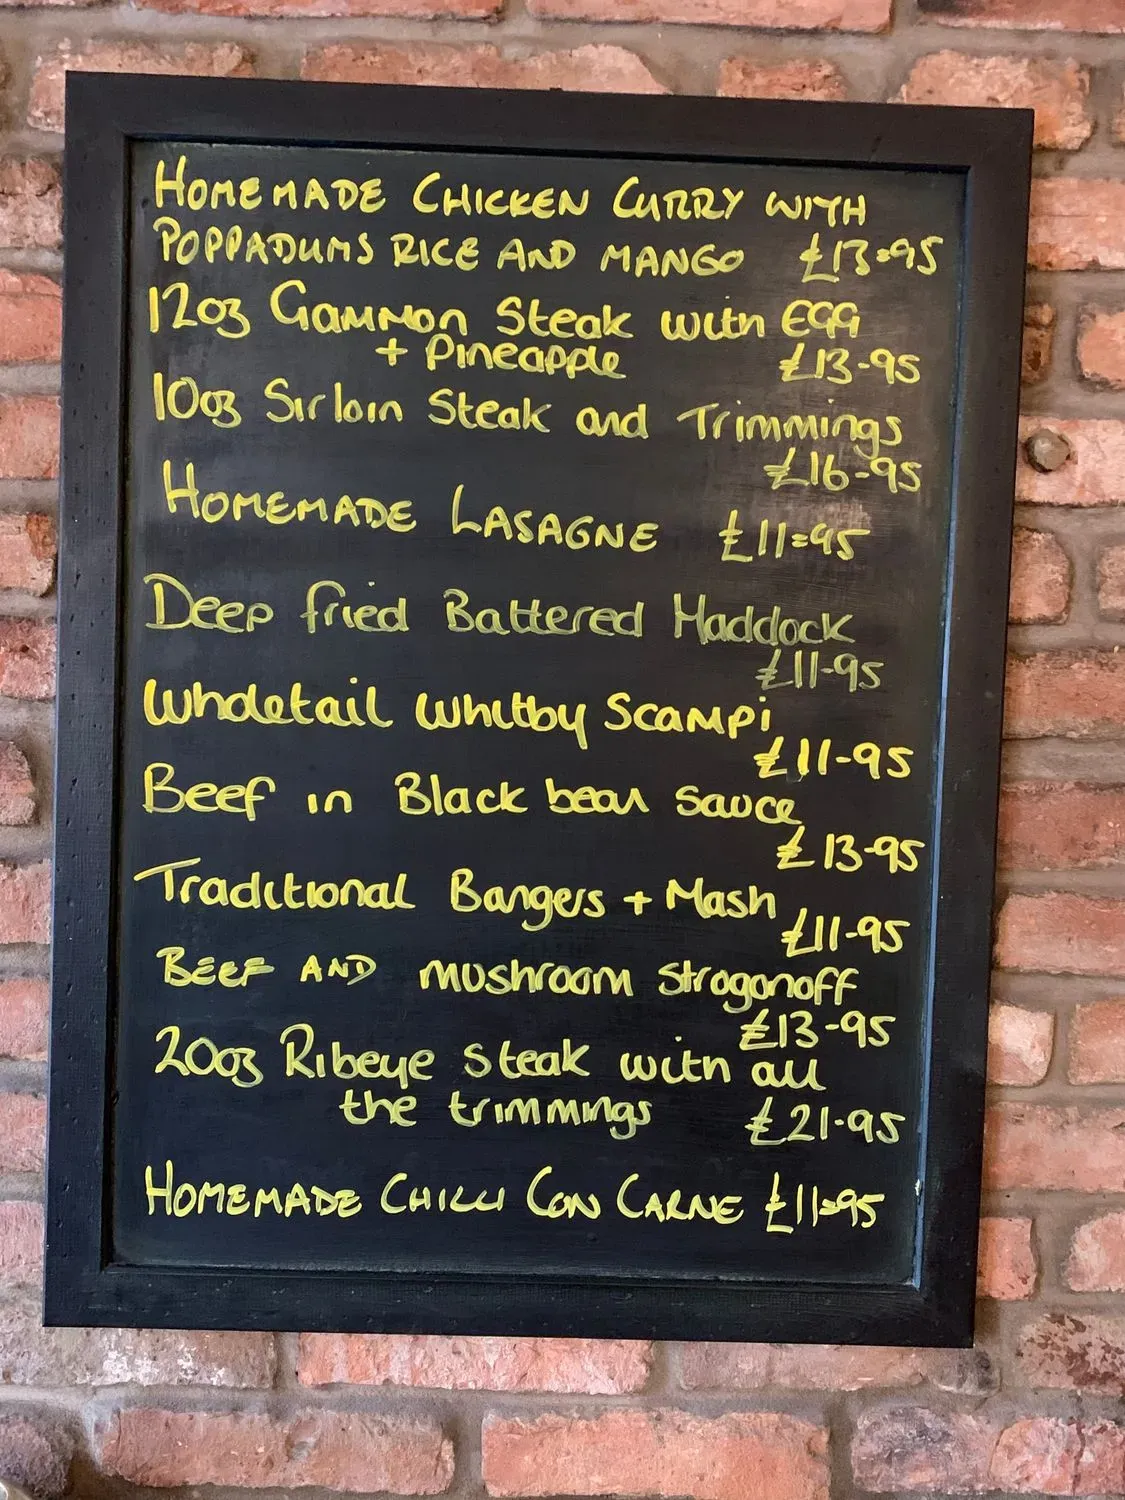 HOMEMADE CHICKEN CURRY WITH
POPPADUMS RICE AND MANGO £13=95
12oz Gammon Steak with EGG
+ Pineapple £13-95
10oz Sirloin Steak and Trimmings
£16-95
HOMEMADE LASAGNE £11=95
Deep fried Battered Haddock
£11-95
Wholetail Whitby Scampi
£11-95
Beef in Black bean sauce
£13-95
Traditional Bangers + Mash
£11-95
BEEF AND mushroom Stroganoff
£13-95
20oz Ribeye Steak with all
the trimmings £21-95
HOMEMADE CHILLI CON CARNE £11=95